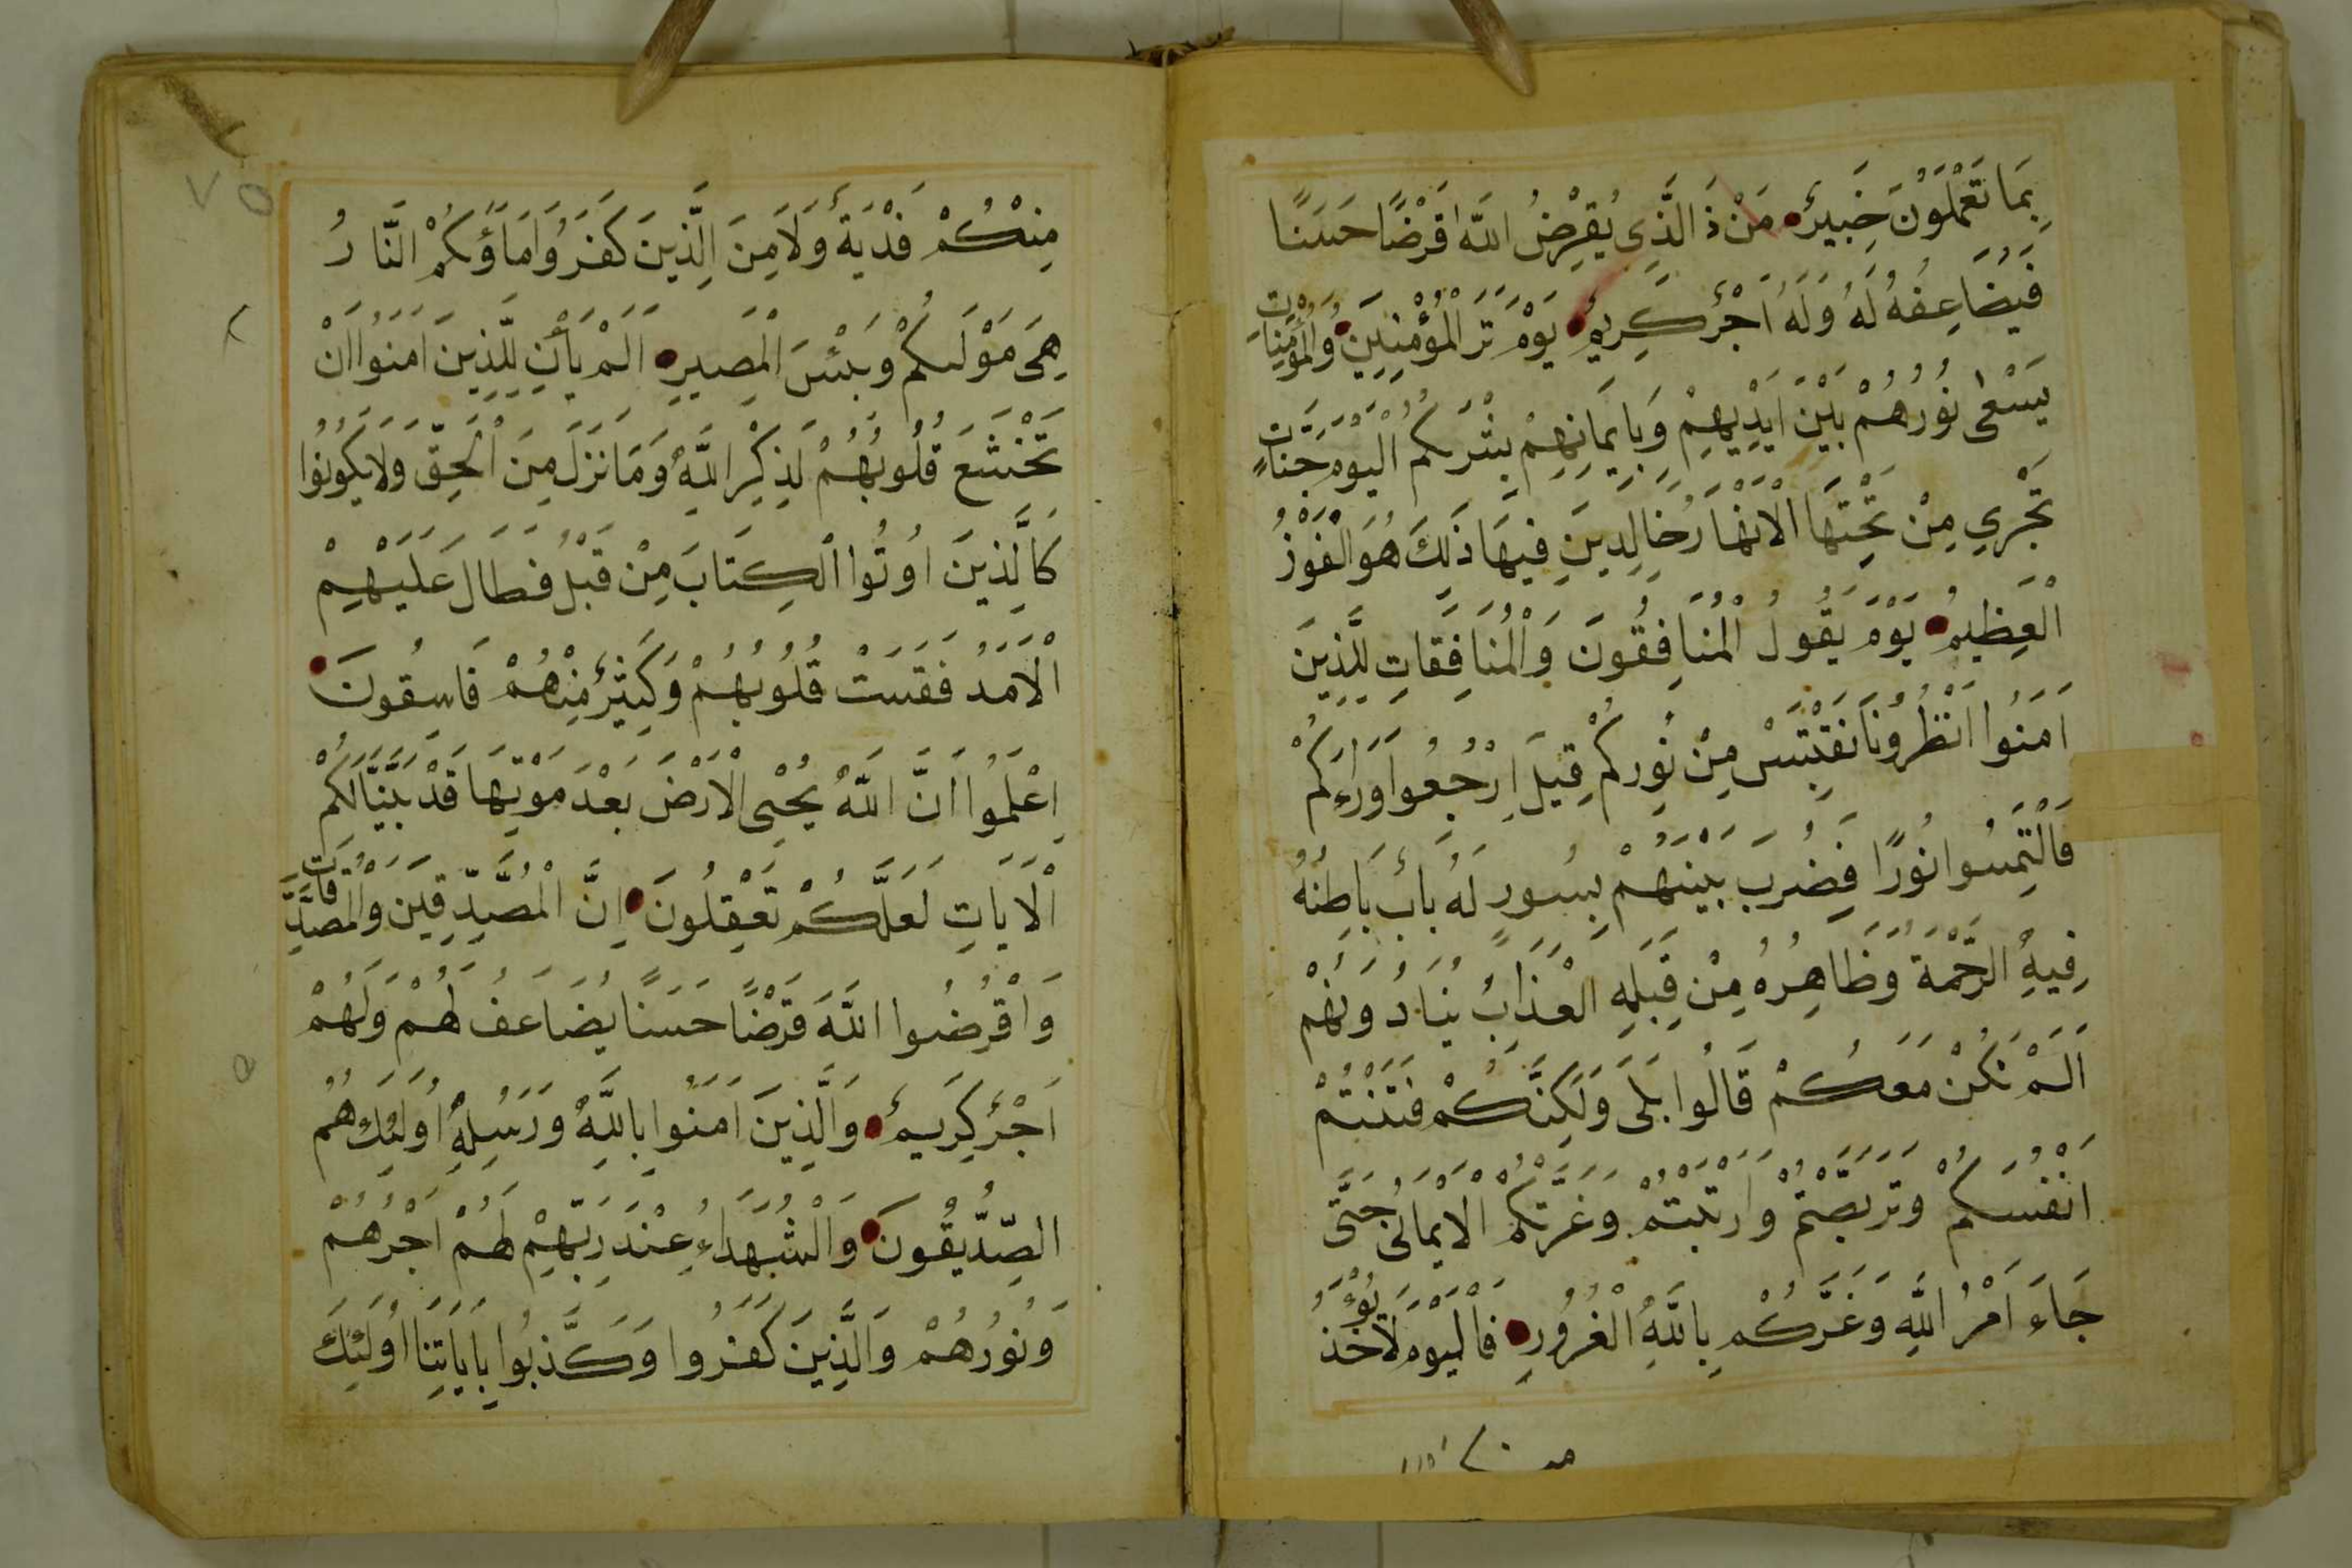 بِمَا تَعْمَلُونَ خَبِيرٌ مَنْ ذَ الَّذِي يُقْرِضُ اللَّهَ قَرْضًا حَسَنًا
فَيُضَاعِفَهُ لَهُ وَلَهُ اَجْرٌ كَرِيمٌ يَوْمَ تَرَ الْمُؤْمِنِينَ وَالْمُؤْمِنَاتِ
يَسْعَى نُورُهُمْ بَيْنَ اَيْدِيهِمْ وَبِاَيْمَانِهِمْ بُشْرَىكُمُ الْيَوْمَ جَنَّاتٍ
تَجْرِي مِنْ تَحْتِهَا الْاَنْهَارُ خَالِدِينَ فِيهَا ذَلِكَ هُوَ الْفَوْزُ
الْعَظِيمُ يَوْمَ يَقُولُ الْمُنَافِقُونَ وَالْمُنَافِقَاتِ لِلَّذِينَ
اَمَنُوا انْظُرُونَا نَقْتَبِسْ مِنْ نُورِكُمْ قِيلَ ارْجِعُوا وَرَاءَكُمْ
فَالْتَمِسُوا نُورًا فَضُرِبَ بَيْنَهُمْ بِسُورٍ لَهُ بَابٌ بَاطِنُهُ
فِيهِ الرَّحْمَةُ وَظَاهِرُهُ مِنْ قِبَلِهِ الْعَذَابُ يُنَادُونَهُمْ
اَلَمْ نَكُنْ مَعَكُمْ قَالُوا بَلَى وَلَكِنَّكُمْ فَتَنْتُمْ
اَنْفُسَكُمْ وَتَرَبَّصْتُمْ وَارْتَبْتُمْ وَغَرَّتْكُمُ الْاَمَانِىُّ حَتَّى
جَاءَ اَمْرُ اللَّهِ وَغَرَّكُمْ بِاللَّهِ الْغُرُورِ فَالْيَوْمَ لَا يُؤْخَذُ
مِنْكُمْ فِدْيَةٌ وَلَا مِنَ الَّذِينَ كَفَرُوا مَاْوٰكُمُ النَّارُ
هِىَ مَوْلَىكُمْ وَبِئْسَ الْمَصِيرِ اَلَمْ يَاْنِ لِلَّذِينَ اَمَنُوا اَنْ
تَخْشَعَ قُلُوبُهُمْ لِذِكْرِ اللَّهِ وَمَا نَزَلَ مِنَ الْحَقِّ وَلَا يَكُونُوا
كَالَّذِينَ اُوتُوا الْكِتَابَ مِنْ قَبْلُ فَطَالَ عَلَيْهِمْ
الْاَمَدُ فَقَسَتْ قُلُوبُهُمْ وَكَثِيرٌ مِنْهُمْ فَاسِقُونَ
اِعْلَمُوا اَنَّ اللَّهَ يُحْيِى الْاَرْضَ بَعْدَ مَوْتِهَا قَدْ بَيَّنَّا لَكُمْ
الْاَيَاتِ لَعَلَّكُمْ تَعْقِلُونَ اِنَّ الْمُصَّدِّقِينَ وَالْمُصَّدِّقَاتِ
وَاَقْرَضُوا اللَّهَ قَرْضًا حَسَنًا يُضَاعَفُ لَهُمْ وَلَهُمْ
اَجْرٌ كَرِيمٌ وَالَّذِينَ اَمَنُوا بِاللَّهِ وَرَسُلِهِ اُولَئِكَ هُمُ
الصِّدِّيقُونَ وَالشُّهَدَاءِ عِنْدَ رَبِّهِمْ لَهُمْ اَجْرُهُمْ
وَنُورُهُمْ وَالَّذِينَ كَفَرُوا وَكَذَّبُوا بِاَيَاتِنَا اُولَئِكَ